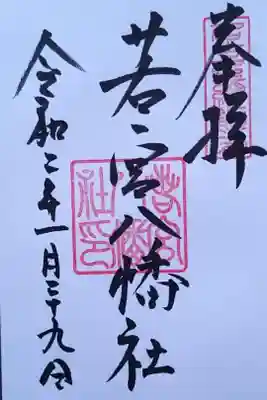 奉拝
若宮八幡社
令和二年一月二十九日